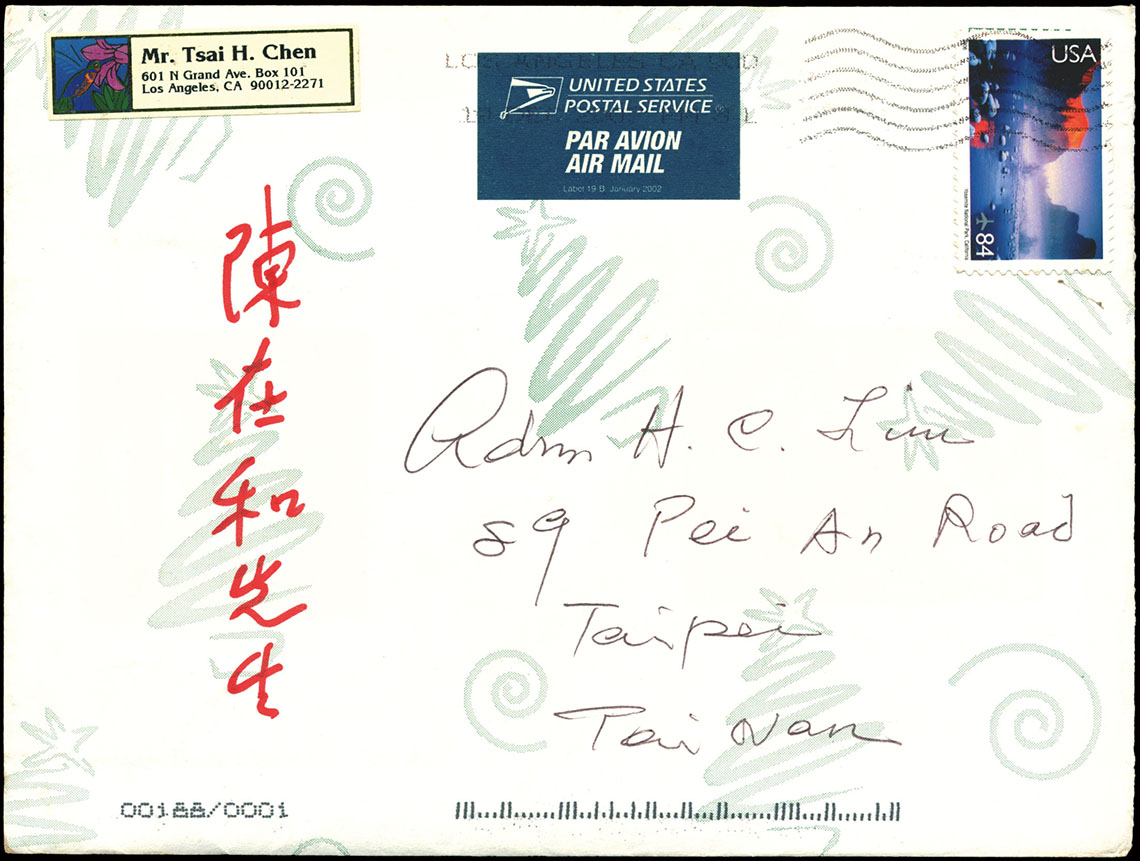 Mr. Tsai H. Chen
601 N Grand Ave. Box 101
Los Angeles, CA 90012-2271
LOS ANGELES CA
UNITED STATES
POSTAL SERVICE
PAR AVION
AIR MAIL
Label 19 B January 2002
USA
Yosemite National Park, California
84
陳在和先生
Adm H. C. Liu
89 Pei An Road
Taipei
Taiwan
00188/0001